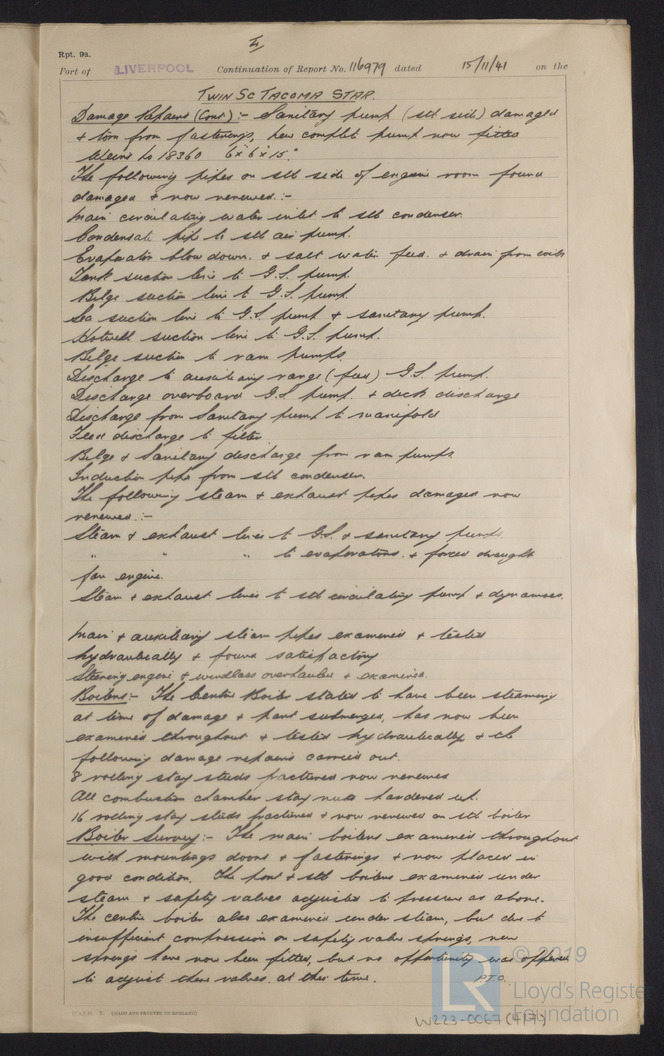 Rpt. 9a.
Port of LIVERPOOL Continuation of Report No. 116979 dated 15/11/41 on the
TWIN SC TACOMA STAR.
Damage Repairs (Cont):- Sanitary pump (stb side) damaged
& torn from fastenings, new complete pump now fitted
Weirs No 18360 6"x6"x15".
The following pipes on stb side of engine room found
damaged & now renewed:-
Main circulating water inlet to stb condenser.
Condensate pipe to stb air pump.
Evaporator blow down. & salt water feed. & drain from coils
Tank suction line to G.S. pump.
Bilge suction line to G.S. pump.
Sea suction line to G.S pump & sanitary pump.
Hotwell suction line to G.S. pump.
Bilge suction to ram pumps.
Discharge to auxiliary range (feed) G.S. pump.
Discharge overboard G.S pump. & deck discharge
Discharge from Sanitary pump to manifold
Feed discharge to filter
Bilge & Sanitary discharge from ram pumps.
Induction pipe from stb condenser.
The following steam & exhaust pipes damaged now
renewed:-
Steam & exhaust lines to G.S. & sanitary pumps.
" " " to evaporators. & forced draught
fan engine.
Steam & exhaust lines to stb circulating pump & dynamos.
Main & auxiliary steam pipes examined & tested
hydraulically & found satisfactory
Steering engine & windlass overhauled & examined.
Boilers:- The Centre Boiler stated to have been steaming
at time of damage & part submerged, has now been
examined throughout & tested hydraulically & the
following damage repairs carried out.
8 rolling stay studs fractured now renewed
All combustion chamber stay nuts hardened up.
16 rolling stay studs fractured & now renewed on stb boiler
Boiler Survey:- The main boilers examined throughout
with mountings doors & fastenings & now placed in
good condition. The port & stb boilers examined under
steam & safety valves adjusted to pressure as above.
The centre boiler also examined under steam, but due to
insufficient compression on safety valve springs, new
springs have now been fitted, but no opportunity was offered
to adjust these valves. at this time. P.T.O.
(MADE AND PRINTED IN ENGLAND)
© 2019
LR
Lloyd's Register
Foundation
W223-0067 (4/7)